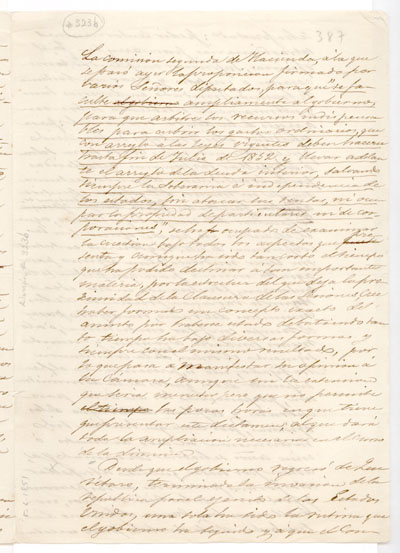 5336
387
La comision segunda de Hacienda, á la que
se pasó ayer la proposicion firmada por
varios Señores diputados, para que se fa-
culte ampliamente al gobierno,
para que arbitre los recursos indispen-
sables para cubrir los gastos ordinarios, que
con arreglo a las leyes vigentes deben hacerse
hasta fin de Julio de 1852 y llevar adelan-
te el arreglo de la deuda interior, salvando
siempre la soberania é independencia de
los estados, sin atacar sus rentas, ni ocu-
par la propiedad de particulares ni de cor-
poraciones", se ha ocupado de examinar
la cuestion bajo todos los aspectos que
senta, y aunque ha sido tan corto el tiempo
que ha podido destinar a tan importante
materia, por la estrechez del que deja la pro-
ximidad de la Clausura de las sesiones, cree
haber formado un concepto exacto del
asunto por haberse estado debatiendo tan-
to tiempo ha bajo diversas formas y
siempre con el mismo resultado, por
lo que pasa a manifestar su opinion á
la Camara, aunque sin la estension
que seria necesaria pero que no permite
las pocas horas en que tiene
que presentar este dictamen, al que dará
toda la ampliacion necesaria en el curso
de la discusion.
Desde que el gobierno regresó de Que-
retaro, terminada la invasion de la
republica por el ejercito de los Estados
Unidos, una sola ha sido la rutina que
el gobierno ha seguido y a que el Con-